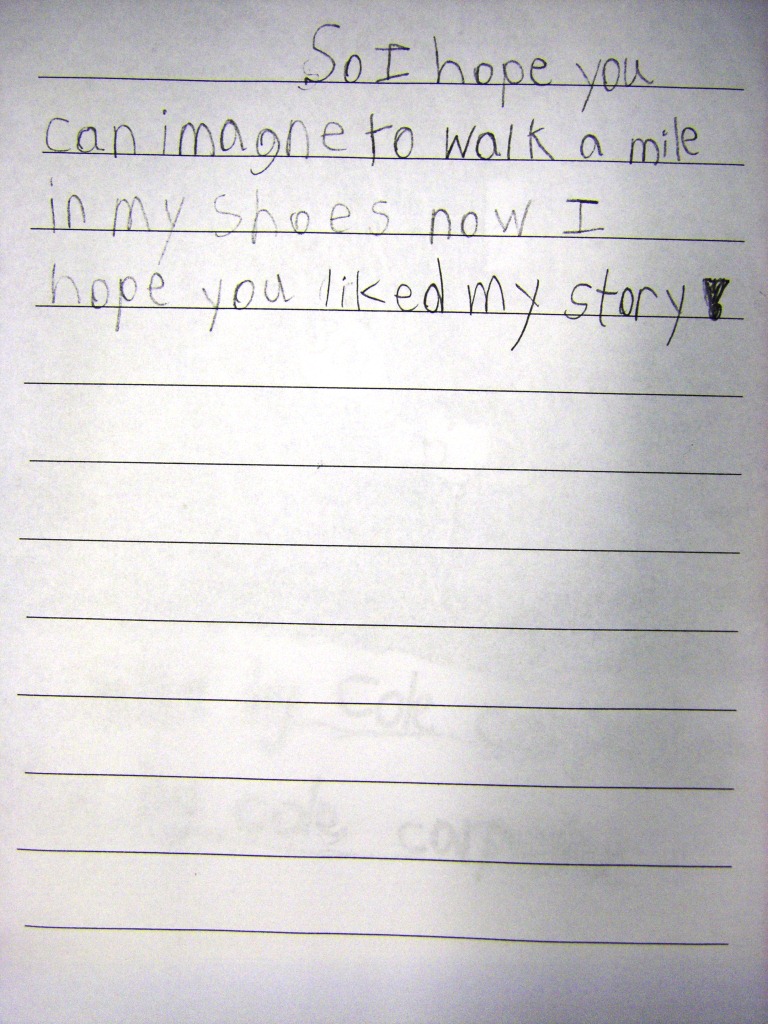 So I hope you
can imagne to walk a mile
in my shoes now I
hope you liked my story!
by Cole
by cole